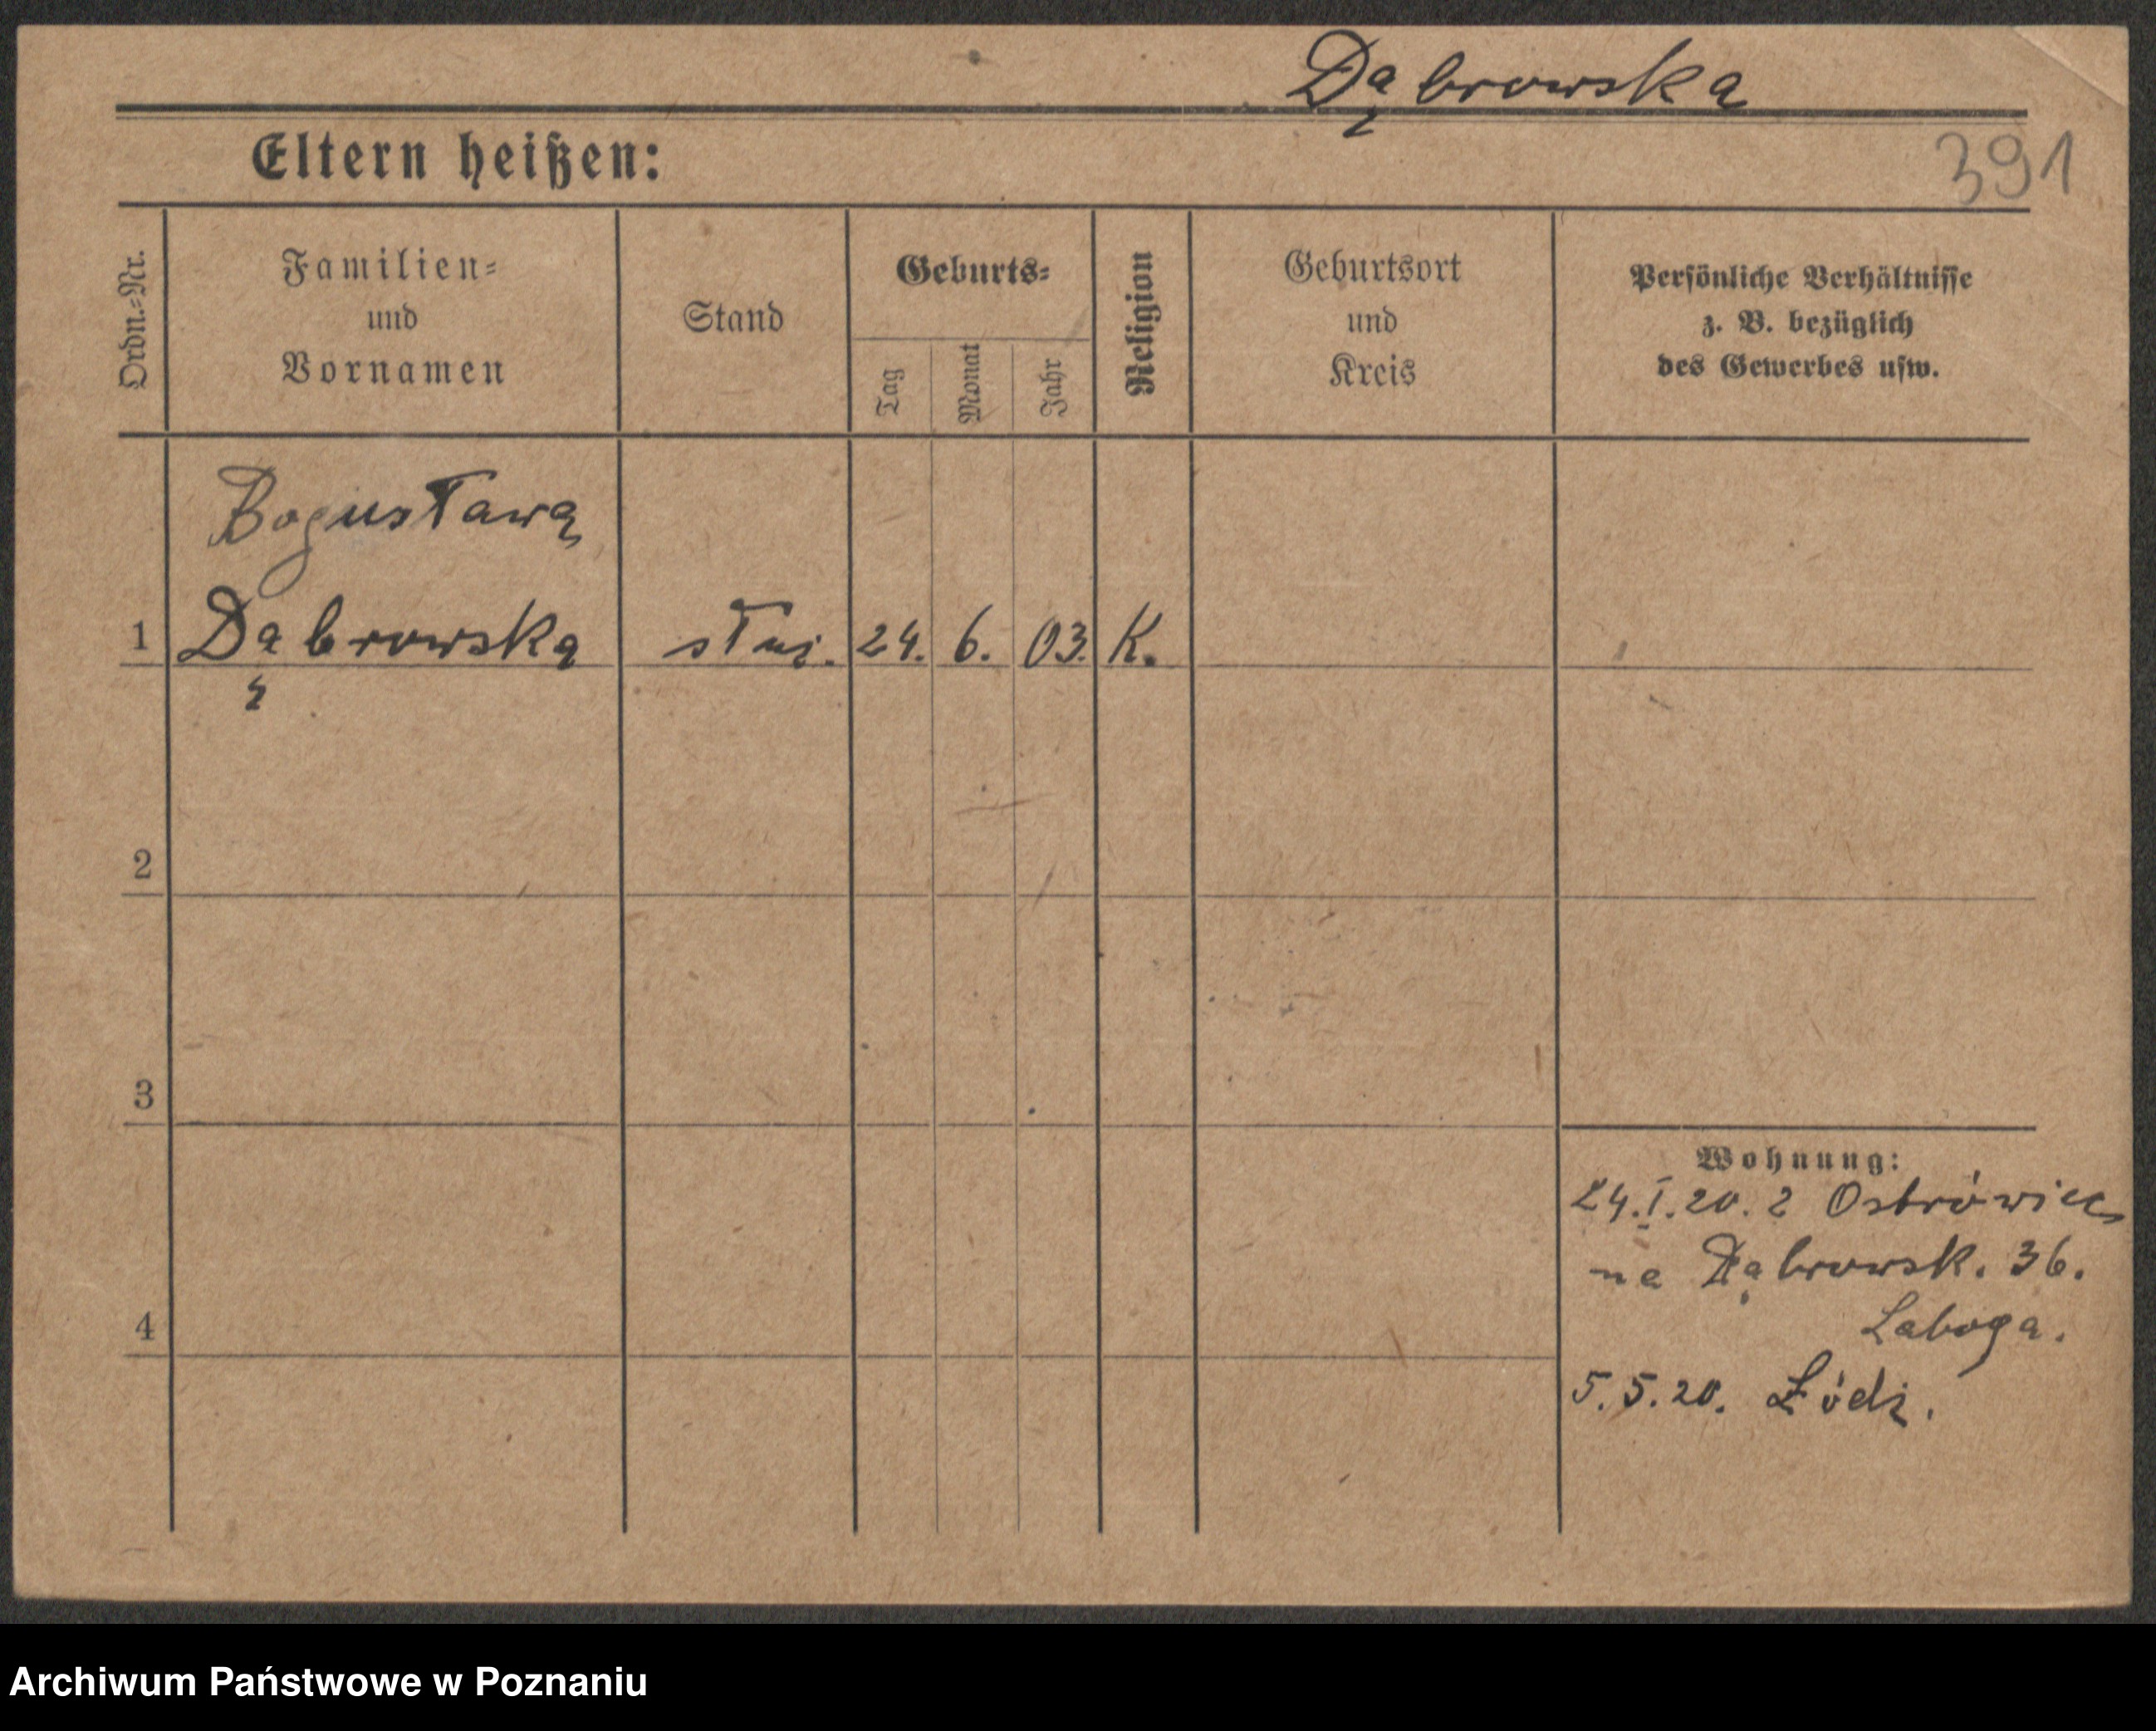 Dąbrowska
Eltern heißen:
391
Ordn.=Nr.
Familien=
und
Vornamen
Stand
Geburts=
Tag
Monat
Jahr
Religion
Geburtsort
und
Kreis
Persönliche Verhältnisse
z. B. bezüglich
des Gewerbes usw.
Bogusława
1 Dąbrowska służ. 24. 6. 03. K.
2
3
4
Wohnung:
24.I.20. z Ostrówiec
na Dąbrowsk. 36.
Laboga.
5.5.20. Łódź.
Archiwum Państwowe w Poznaniu